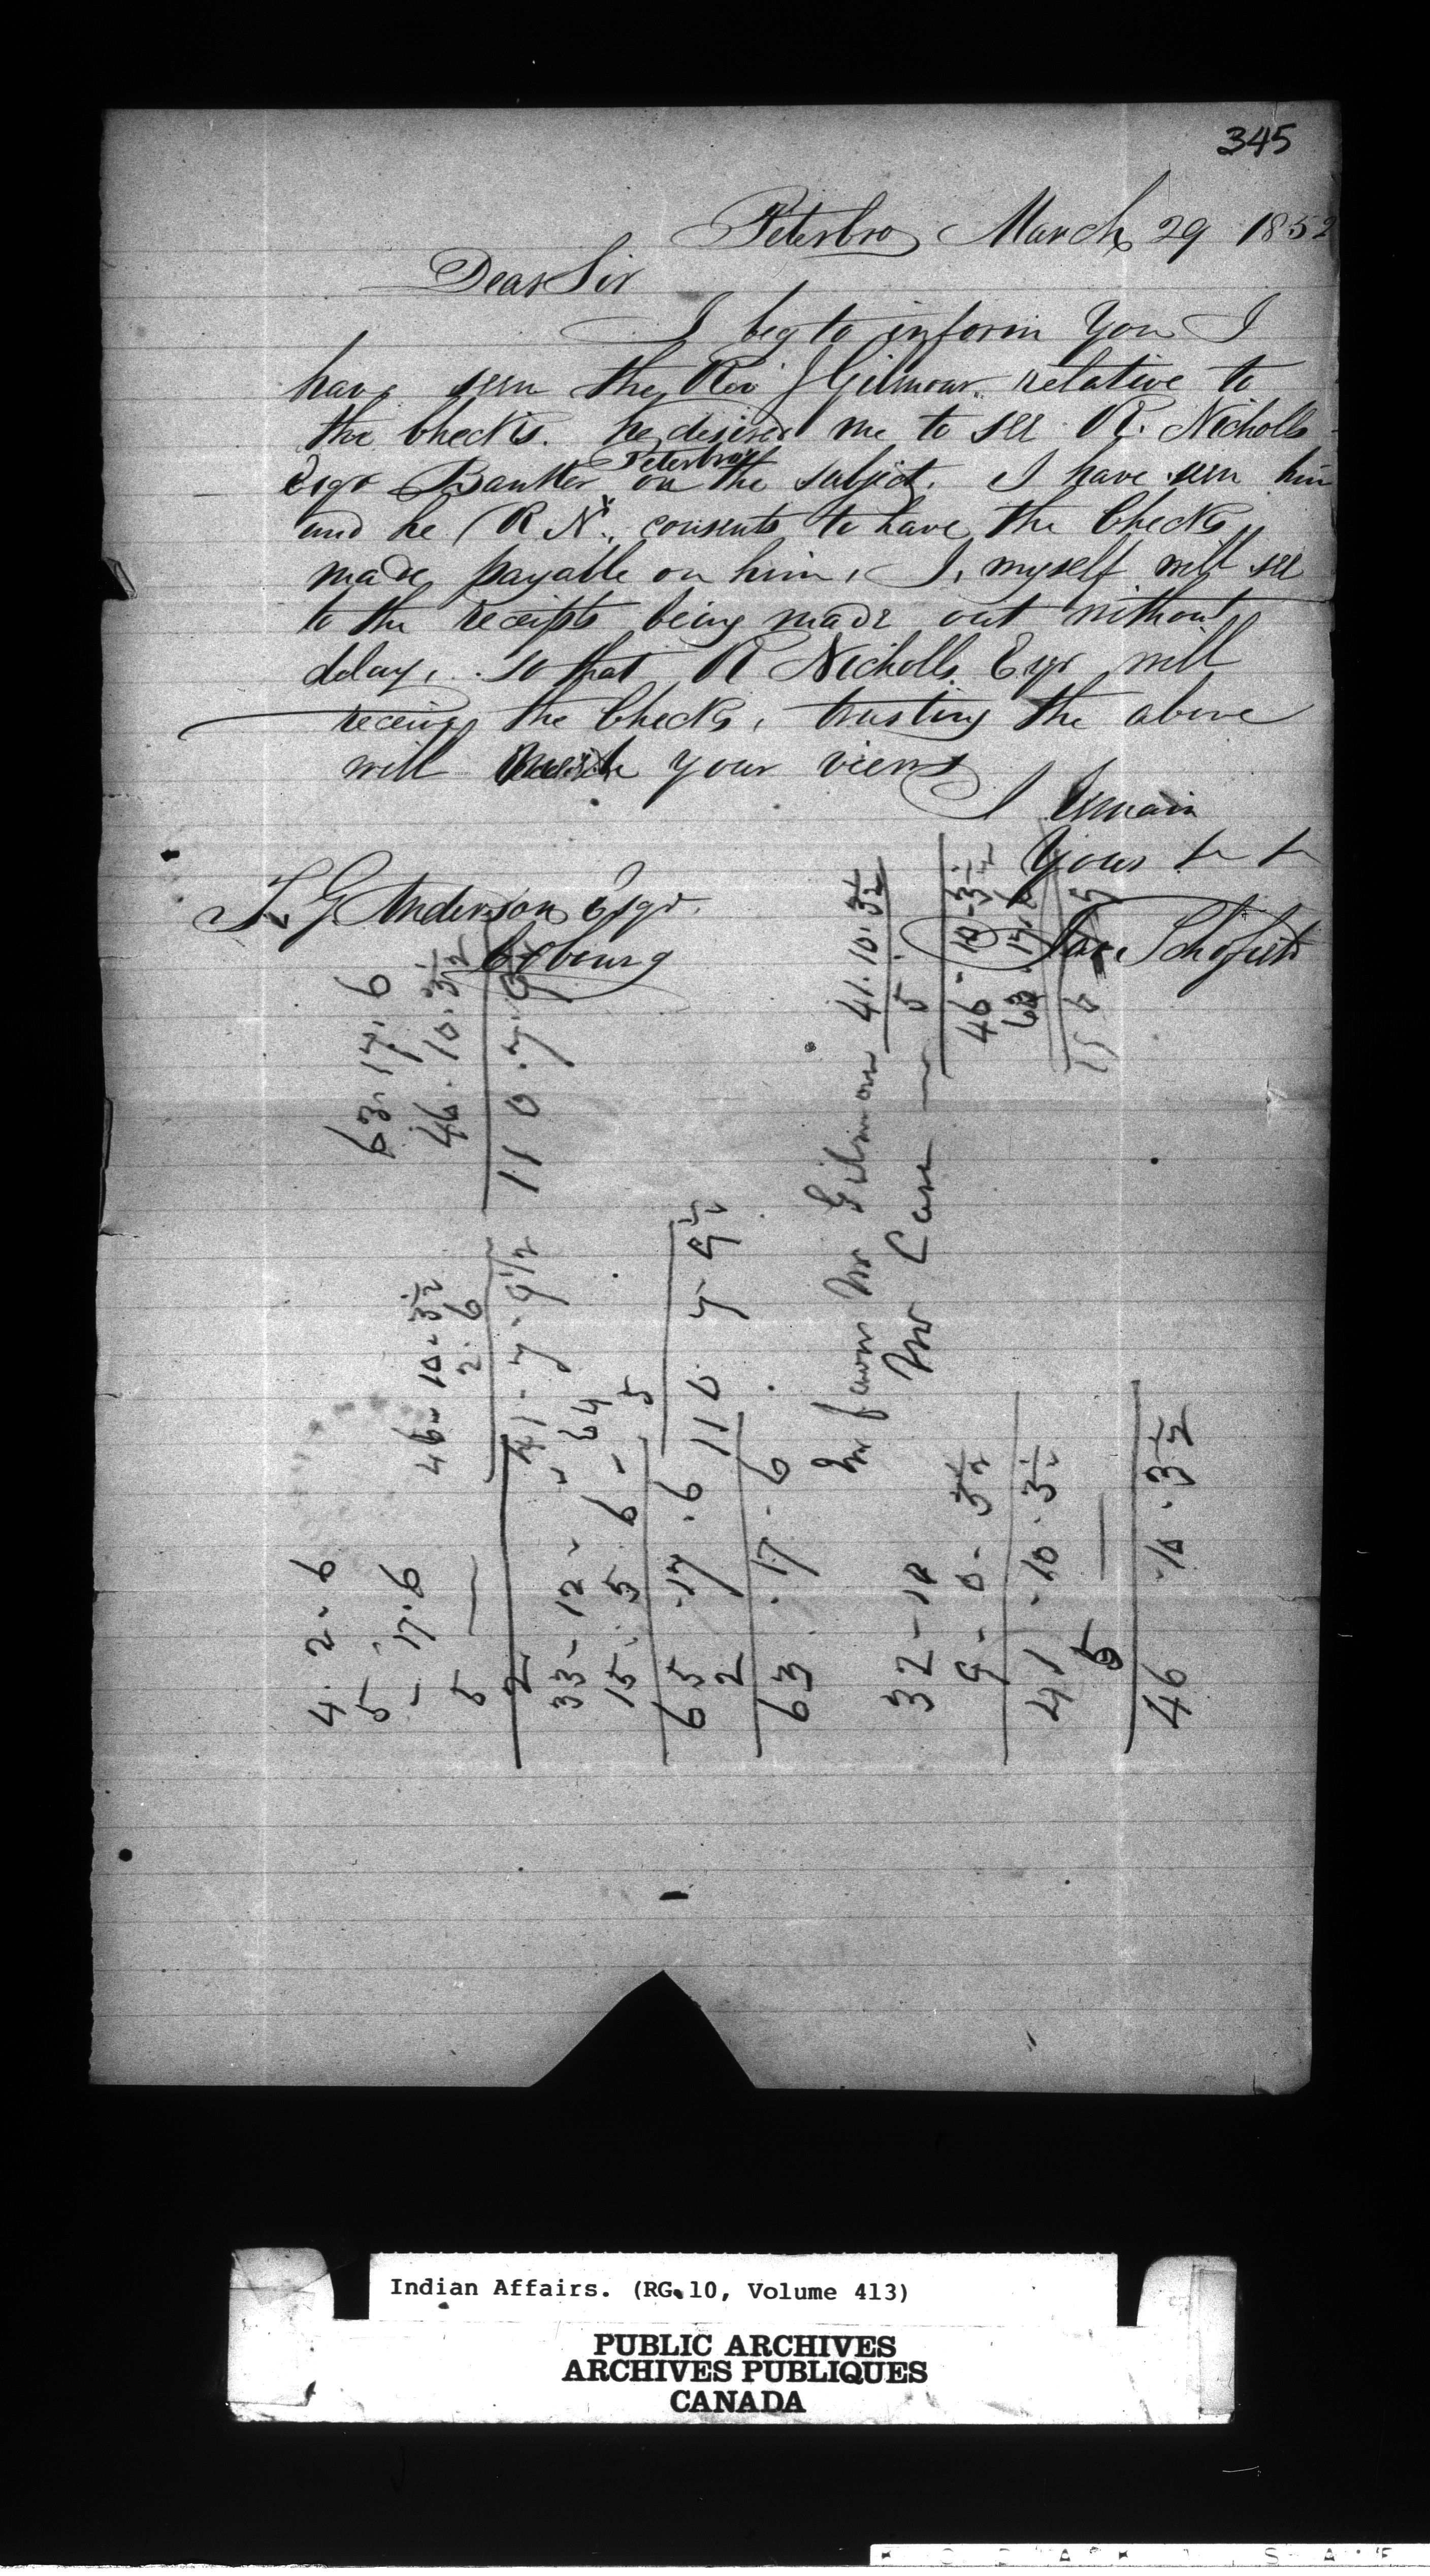 345
Peterbro March 29 1852
Dear Sir
I beg to inform You I
have seen the Rev J Gilmour relative to
the Checks. he desired me to see R. Nicholls
Esqr Banker Peterbro on the subject. I have seen him
and he (R N. consents to have the Checks
made payable on him, I, myself will see
to the receipts being made out without
delay, so that R Nicholls Esqr will
receive the Checks, trusting the above
will your views
I remain
Yours
T G Anderson Esqr.
Cobourg
63. 17. 6
46. 10. 3½
110. 7. 9½
46 - 10 - 3½
2. 6
41 - 7 - 9½
64
5
110 7 - 9½
4. 2 - 6
5
- 17. 6
5 —
2
33 - 12 -
15. 5. 6 -
65. 17. 6
2
63. 17. 6
In favor Mr Gilmour 41. 10. 3½
Mr Case — 5.
46 - 10 - 3½
32 - 10
9 - 0 - 3½
41 - 10. 3½
5 —
46 - 10. 3½
Indian Affairs. (RG.10, Volume 413)
PUBLIC ARCHIVES
ARCHIVES PUBLIQUES
CANADA